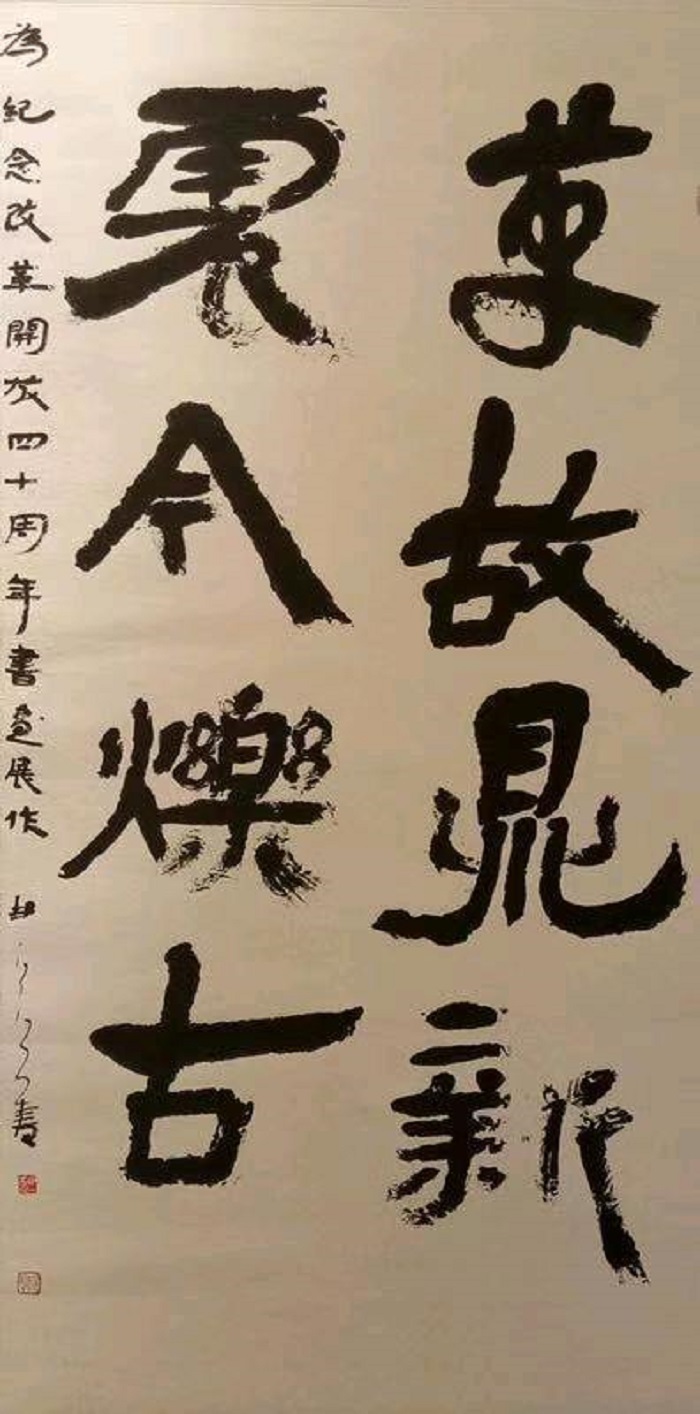 革故鼎新
震今爍古
為紀念改革開放四十周年書畫展作 胡 書